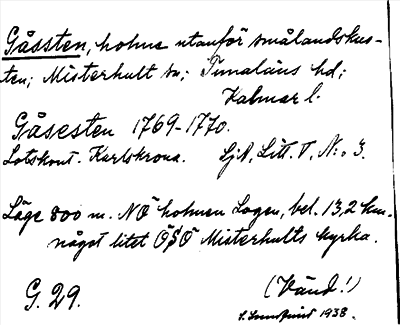 Gåssten, holme utanför smålandskus-
ten; Misterhult sn; Tunaläns hd;
Kalmar l.
Gåsesten 1769-1770.
Lotskont. Karlskrona. Sjk, Litt. V, N:o 3.
Läge 800 m. NÖ holmen Logen, bel. 13,2 km.
något litet ÖSÖ Misterhults kyrka.
G. 29. (Vänd!)
1938.